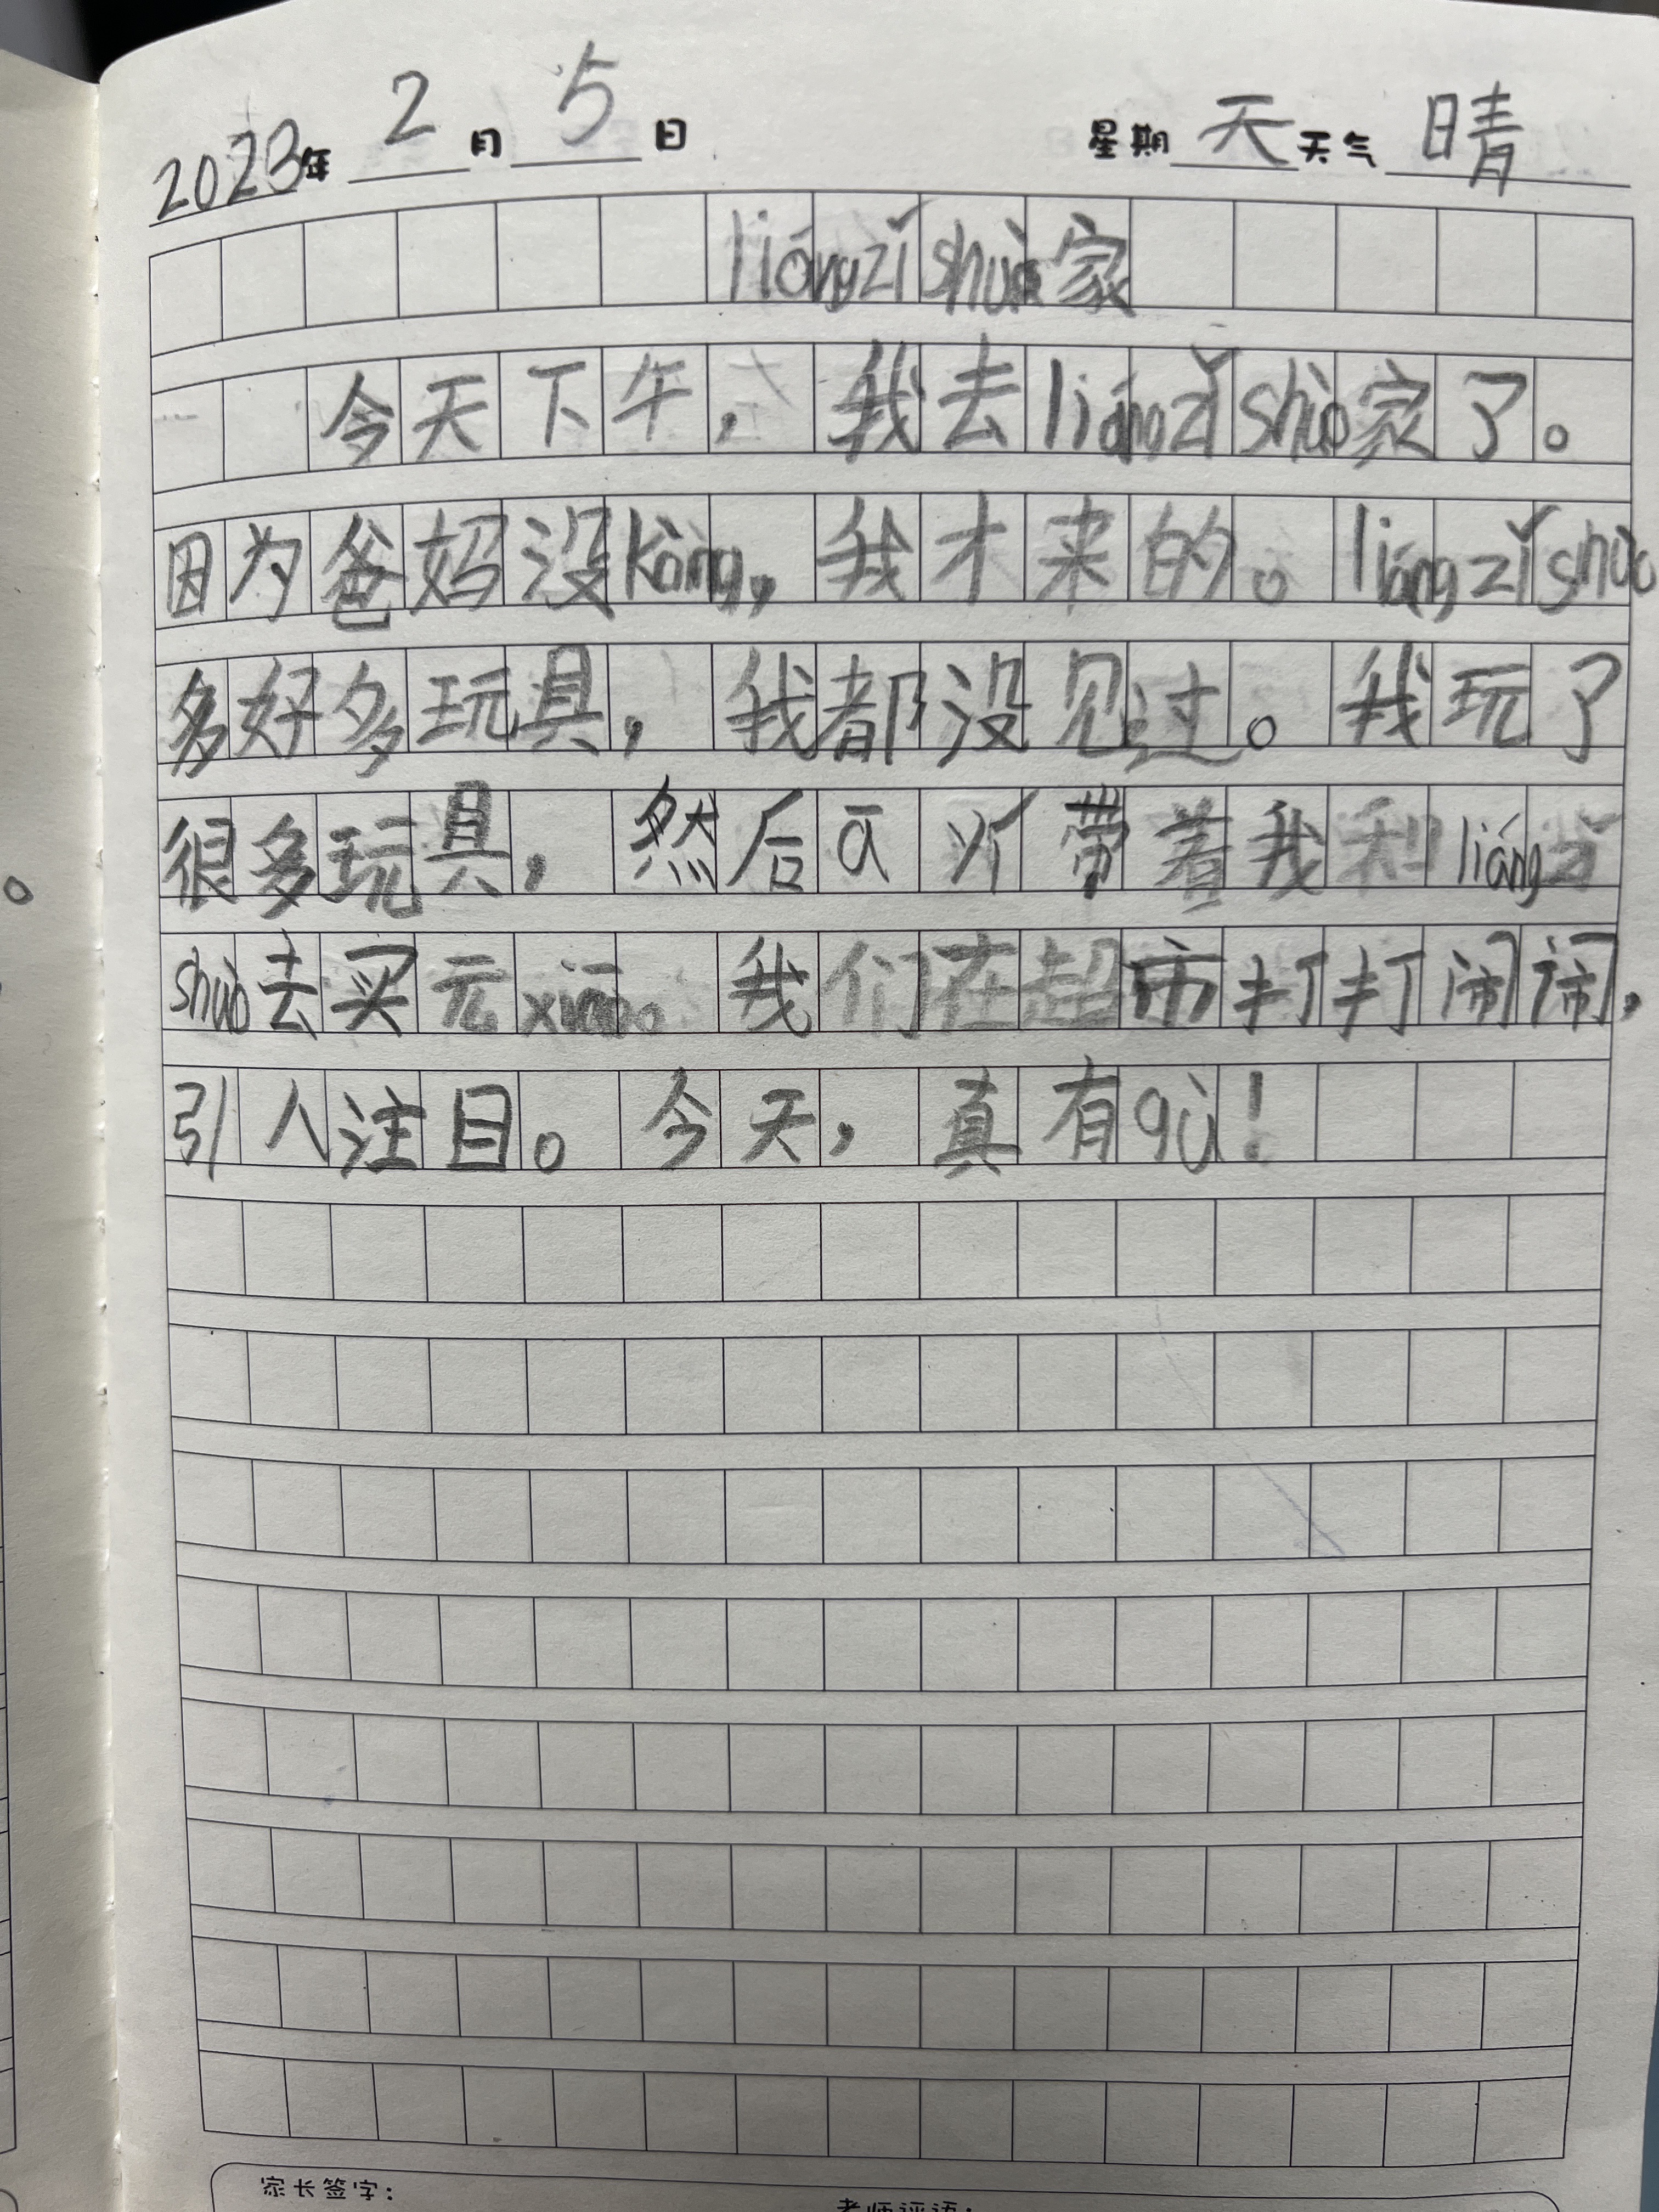 2023年 2 月 5 日 星期 天 天气 晴
liángzǐshuò家
今天下午，我去liángzǐshuò家了。
因为爸妈没kòng，我才来的。liángzǐshuò
多好多玩具，我都没见过。我玩了
很多玩具，然后ā yí带着我和liáng子
shuò去买元xiāo。我们在超市打打闹闹，
引人注目。今天，真有qù！
家长签字：
老师评语：